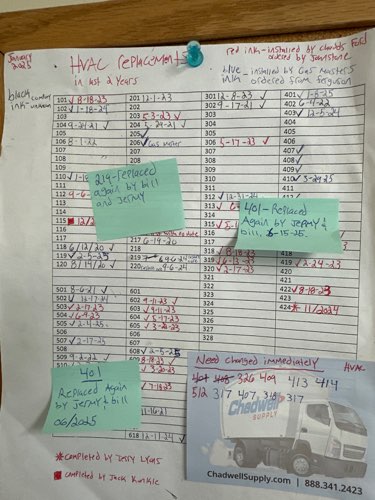 January 2025
HVAC Replacements
in last 2 years
red ink - installed by
ordered by Johnstone
blue ink - installed by Gas Masters
ordered from ferguson
black ink -
101 ✓ 8-18-23
102 ✓ 1-18-24
103
104 9-24-21 ✓
105
106 8-1-22
107
108
109
110 ✓
111
112
113
114
115 ■ 12/
116
117
118 6/12/20 ✓
119 ✓ 2-5-25
120 8/19/20 ✓
201 12-1-23
202
203 5-3-23 ✓
204 5-24-21 ✓
205 ✓
206 ✓ Gas Meter
207
208
218 6-19-20
219
220 9-6-24
301 12-8-23 ✓
302 9-17-21 ✓
303
304
305
306 5-17-23 ✓
307
308
309
310
311
312 ✓ 12-31-24
313
314
315 ✓
316
317
318 ✓ 8-18-23
319 ✓ 6-13-23
320 ✓ 2-17-23
321
322
323
324
325
326
327
328
401 ✓ 1-8-25
402 6-4-22
403 ✓ 12-5-24
404
405 ✓
406
407 ✓
408 ✓
409 ✓
410 ✓ 3-29-25
411
412
419 ✓ 2-24-23
420
421
422 ✓ 8-18-23
423
424 * 11/2024
219-replaced
again by bill
and JERMY
401-Replaced
Again by JERMY &
bill, 6-15-25.
501 8-6-21 ✓
502 ✓ 12-17-24
503 ✓ 2-17-23
504 ✓ 6-9-23
505 ✓ 2-4-25
506
507 ✓ 2-17-25
508
509 9-2-22 ✓
510
601
602 9-11-23 ✓
603 ✓ 9-11-23
604 ✓ 5-17-23
605 ✓ 3-20-23
606
607
608 ✓ 2-5-25
✓ 3-20-23
✓ 7-18-23
11-16-21
618 12-11-24 ✓
401
Replaced Again
by JERMY & bill
06/2025
* completed by Jerry Lyons
■ completed by Jack Kunkle
Need changed immediately HVAC
401 408 326 409 413 414
512 317 407, 318, 317
Chadwell
SUPPLY
ChadwellSupply.com | 888.341.2423